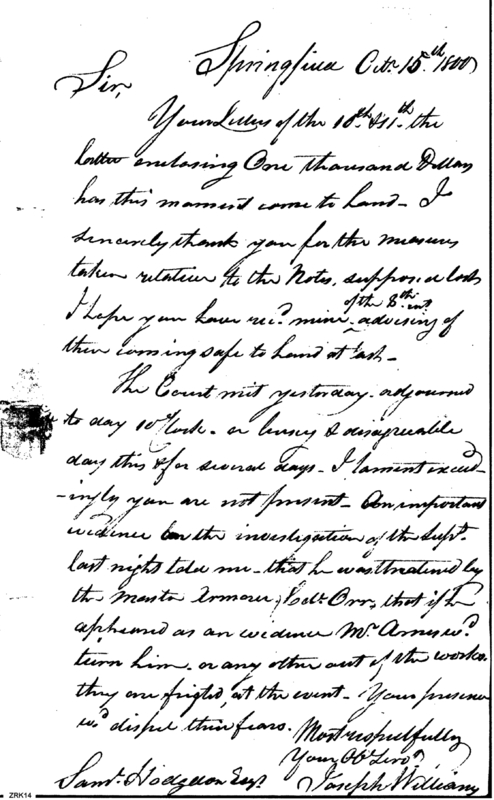 Springfield Octr. 15th 1800
Sir,
Your Letters of the 10th & 11th the
latter enclosing One thousand Dollars
has this moment come to hand - I
sincerely thank you for the measures
taken relative to the Notes, supposed lost
of the 8th inst
I hope you have recd. mine ^ advising of
their coming safe to hand at last -
The Court met yesterday - adjourned
to day 10 oClock - a busey & disagreeable
day this & for several days - I lament exceed-
-ingly you are not present - An important
evidence on the investigation of the Supt.
last night told me - that he was threatened by
the Master Armorer, Robt. Orr, that if he
appeared as an evidence Mr. Ames wd.
turn him - or any other out of the works.
they are fright, at the event - Your presence
wd. dispel their fears.
Most respectfully
Your Ob Servt.
Joseph Williams
Saml. Hodgdon Esqr.
ZRK14